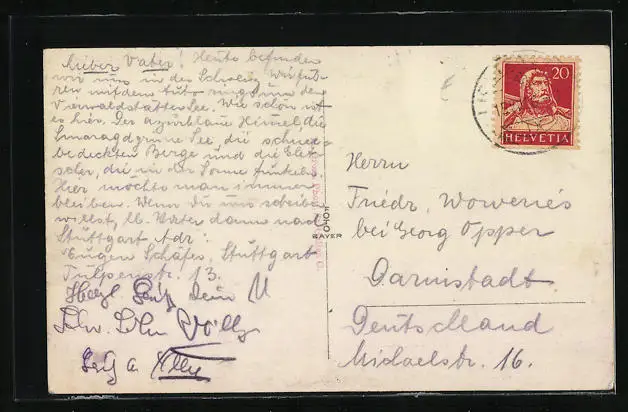 Lieber Vater! Heute befinden
wir uns in der Schweiz, wir fuh-
ren mit dem Auto rings um den
Vierwaldstättersee. Wie schön ist
es hier. Der azurblaue Himmel, die
Smaragdgrüne See, die schnee-
bedeckten Berge und die Glet-
scher, die in der Sonne funkeln.
Hier möchte man immer
bleiben. Wenn Du uns schreiben
willst, lb. Vater dann nach
Stuttgart Adr.:
Eugen Schäfer, Stuttgart
Tulpenstr. 13.
Herzl. Dein
Willy
20
HELVETIA
BAYER
Herrn
Friedr. Woweries
bei Georg Opper
Darmstadt
Deutschland
Michaelstr. 16.